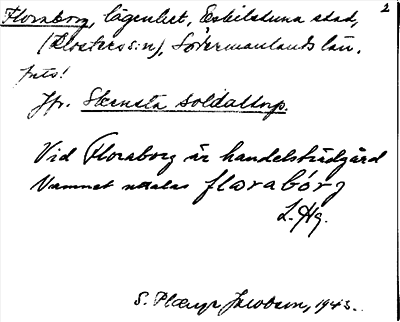 2
Floraborg, lägenhet, Eskilstuna stad,
(Klosters s:n), Södermanlands län.
foto!
Jfr. Stensta soldattorp.
Vid Floraborg är handelsträdgård
Namnet uttalas floraborg
L. Hg.
S. Jacobson, 1943.